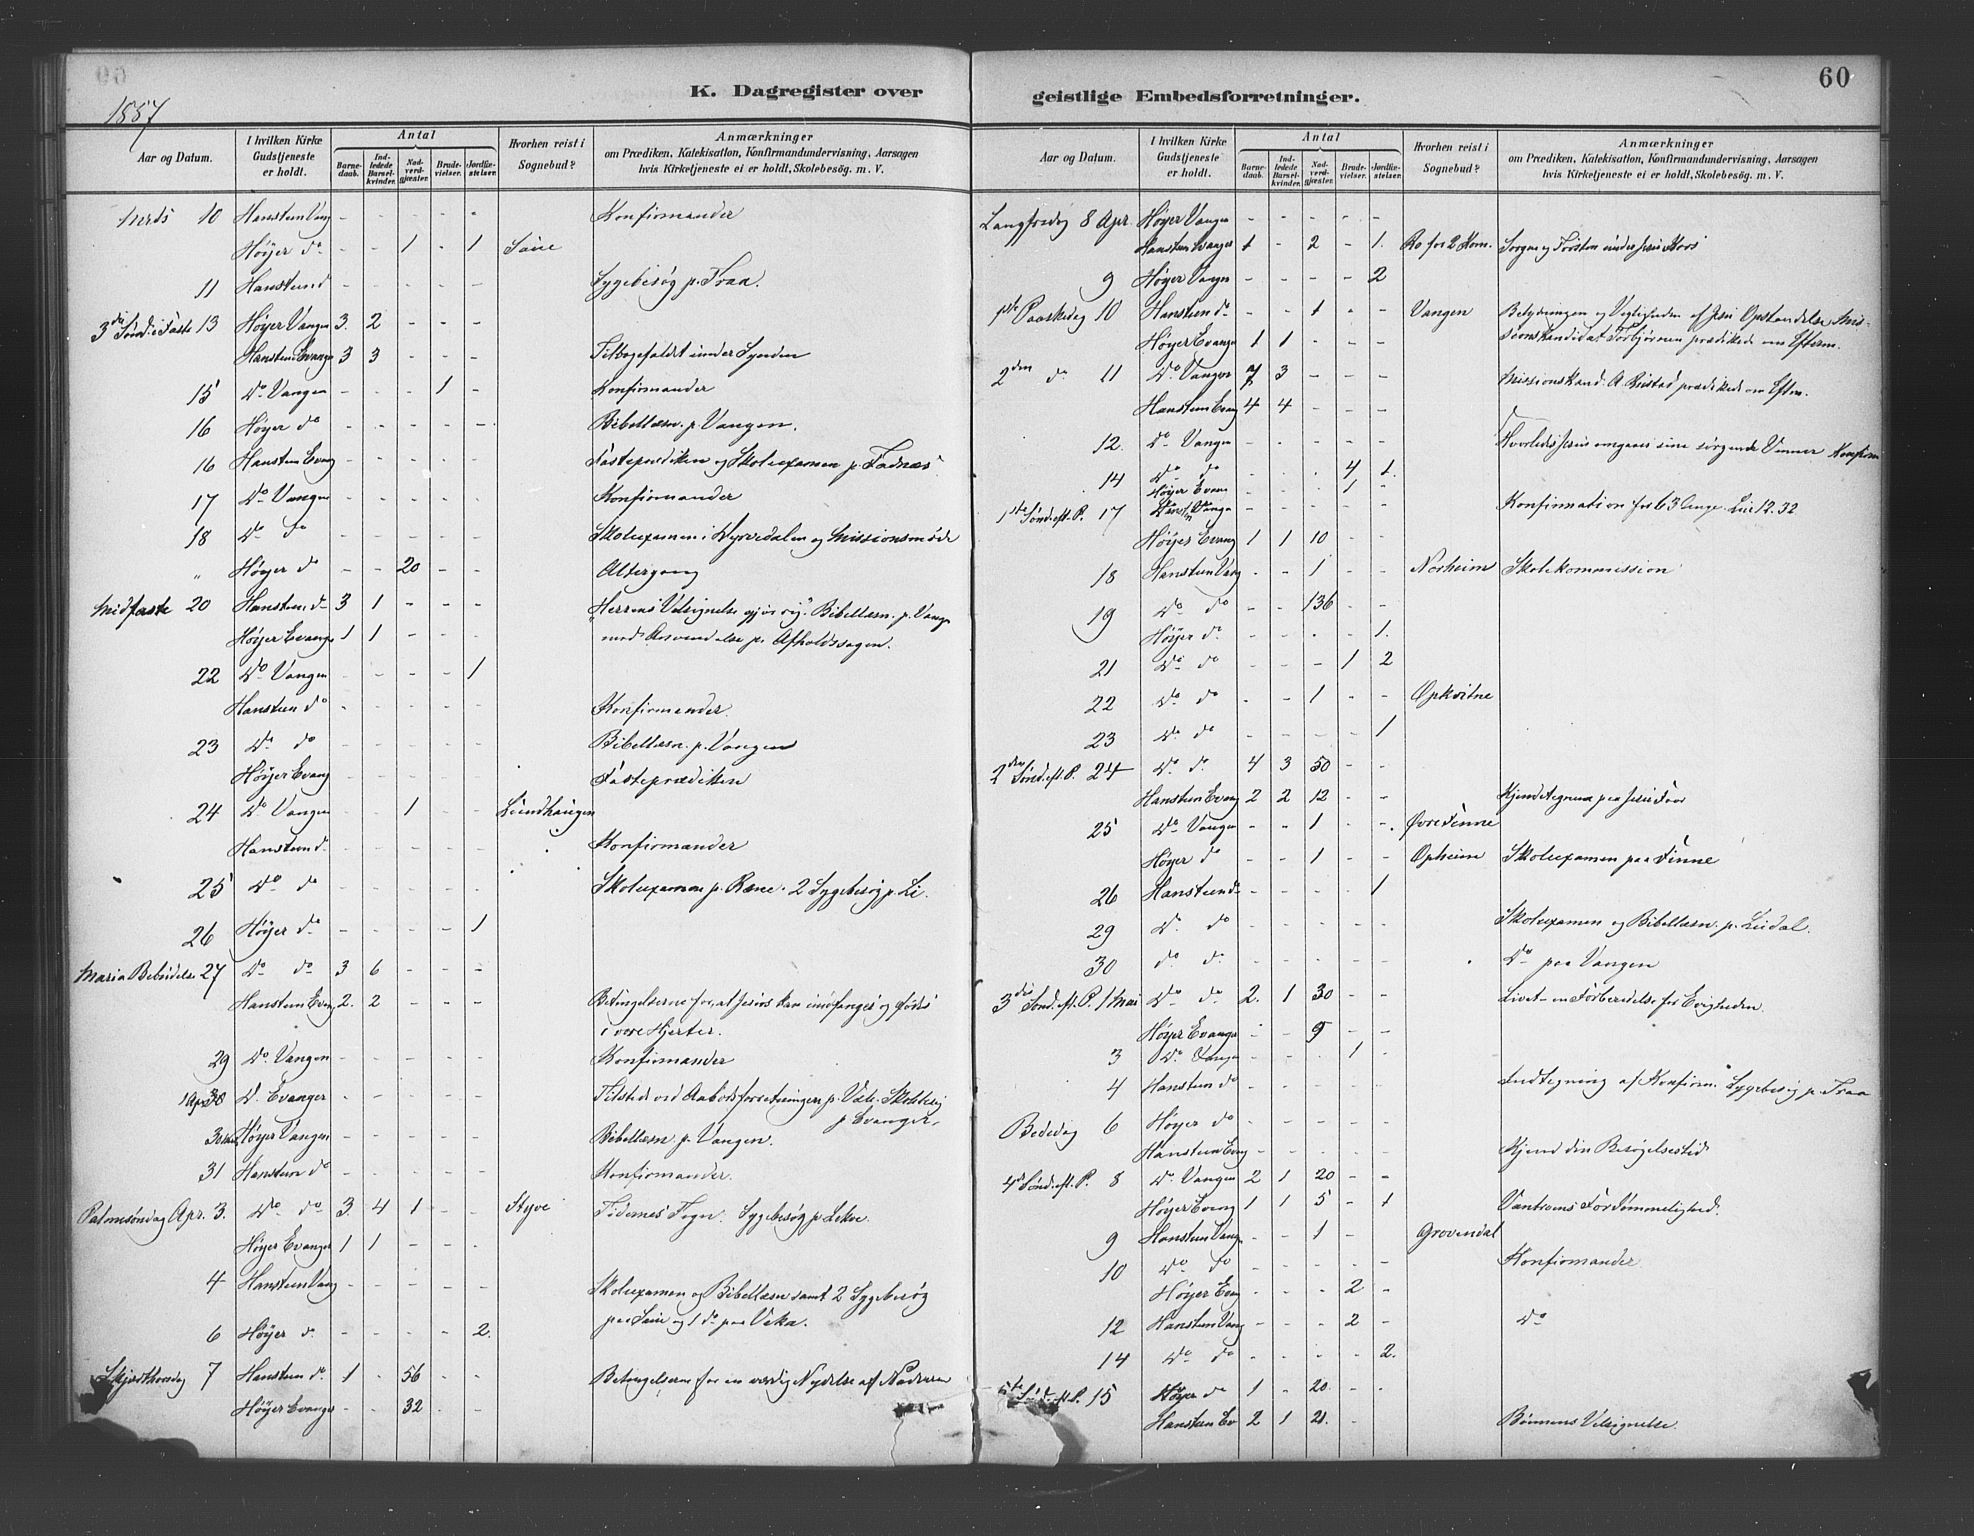 60
1887
K. Dagregister over
Aar og Datum. I hvilken Kirke Gudstjeneste er holdt. Antal Barnedaab. Indledede Barselkvinder. Nadverdgjæster. Brudevielser. Jordfæstelser. Hvorhen reist i Sognebud? Anmærkninger
om Prædiken, Katekisation, Konfirmandundervisning, Aarsagen
hvis Kirketjeneste ei er holdt, Skolebesøg. m. V.
Marts 10 Hanstun Vang - - - - - Konfirmander
Høyer do - - 1 - 1
11 Hanstun d Sygebesøg p. Traa.
3die Sønd. i Faste 13 Høyer Vangen 3. 2 - - -
Hanstun Evange 3 3 - - - Tilbagefaldet under Synden
15 Do Vangen - - - 1 - Konfirmander
16 Høyer do - - - - - Bibellæsn. p. Vangen.
16 Hanstun Evang Fasteprædiken og Skoleexamen p. Fadnæs
17 Do Vangen - - - - - Konfirmander
18 Do do - - - - - Skoleexamen i Dyrvedalen og Missionsmøde
" Høyer do - - 20 - - Altergang
Midfaste 20 Hanstun do 3 1 - - - "Herrens Velsignelse gjør rig". Bibellæsn. p. Vangn
Høyer Evange 1 1 - - - med Anvendelse paa Afholdssagen.
22 Do Vangen - - - - 1
Hanstun do - - - - - Konfirmander.
23 Do do - - - - - Bibellæsn. p. Vangen
Høyer Evang - - - - - Fasteprædiken
24 Do Vangen - - 1 - - Lundhaugen
Hanstun d. - - - - - Konfirmander
25 Do do - - - - - Skoleexamen p. Rene. 2 Sygebesøg p. Li.
26 Høyer do - - - - 1
Maria Bebudelse 27 Do do 3 6 - - -
Hanstun Evang 2. 2 - - - Betingelserne for, at Jesus kan undfanges og fødes
i vore Hjerter.
29 Do Vangen - - - - - Konfirmander
1 Apr. D. Evanger - - - - - Tilstede ved Aabodsforretningen p.
p Evanger.
30 Høyer Vangen - - - - - Bibellæsn p. Vangen.
31 Hanstun do - - - - - Konfirmander.
Palmesøndag Apr. 3. Do do 3. 4 1 - - Styve Tidernes Tegn. Sygebesøg p. Lekve.
Høyer Evanger 1 1 - - -
4 Hanstun Vang - - - - - Skoleexamen og Bibellæsn samt 2 Sygebesøg
6 Høyer d. - - - - 2. og 1 do paa
Skjærthorsdag 7 Hanstun do 1 - 56 - - Betingelserne for en værdig Nydelse af Nadveren
Høyer Evanger - - 32 - -
geistlige Embedsforretninger.
Aar og Datum. I hvilken Kirke Gudstjeneste er holdt. Antal Barnedaab. Indledede Barselkvinder. Nadverdgjæster. Brudevielser. Jordfæstelser. Hvorhen reist i Sognebud? Anmærkninger
om Prædiken, Katekisation, Konfirmandundervisning, Aarsagen
hvis Kirketjeneste ei er holdt, Skolebesøg. m. V.
Langfredag 8 Apr. Høyer Vangen - - - - -
Hanstun Evanger 1 - 2 - 1. for 2 Kom. Sorgen og Trøsten under Jesu Kors
9 Høyer Vangen - - - - 2
1ste Paaskedag 10 Hanstun do - - 1 - - Vangen Betydningen og Vigtigheden af Jesu Opstandelse. Mis-
Høyer Evange 1 1 - - - sionskandidat Torbjørnsen prædikede om Efterm.
2den do 11 Do Vangen 7 3 - - - Missionskand. A. Rustad prædikede om Eftm.
Hanstun Evang 4 4 - - -
12. Do Vangen - - - - - Hvorledes Jesus omgaaes sine sørgende Venner Konfirm
14 Do do - - - 4 1.
Høyer Evan - - - 1 -
1ste Sønd. eft. P. 17 Hanstun Vange - - - - - Konfirmation for 63 Unge. Luc 12.32
Høyer Evang 1 1 10 - -
18 Hanstun Vang - - 1 - - Norheim Skolekommission
19 Do do - - 136 - -
Høyer do - - - - 1.
21 Do do - - - 1 2
22 Do do - - 1 - - Opkvitne
23 Do do - - - - 1
2den Sønd. eft. P. 24 Do do 4 3 50 - -
Hanstun Evang 2 2 12 - - Kjendetegnene paa Jesu Faar
25 Do Vangen - - 1 - - Øvre Finne
Høyer do - - 1 - - Opheim Skoleexamen paa Finne
26 Hanstun do - - - - 1
29 D. do - - - - - Skoleexamen og Bibellæsn. p. Lidal.
30 do do Do paa Vangen
3die Sønd. eft. P. 1 Mai Do do 2. 1 30 - - Livet en Forberedelse for Evigheden.
Høyer Evange - - 9 - -
3 Do Vangn - - - 1 -
4 Hanstun do Indtegning af Konfirm. Sygebesøg p. Traa
Bededag 6 Høyer do - - - - -
Hanstun Evang - - - - - Kjend din Besøgelsestid
4de Sønd. eft. P. 8 Do Vangen 2 1 20 - -
Høyer Evang 1 1 5 - 1 Vantroens Fordømmelighed.
9 Hanstun Vang - - 1 - - Grovendal
10 Do do - - - - - Konfirmander
Høyer Evang - - - 2 -
12 Hanstun Vang - - - 2 - Do
14 Do do - - - - 2.
5te Sønd. eft. P. 15 Høyer do 1 - 20. - -
Hanstun Ev 2 1 21. - Bønnens Velsignelse.